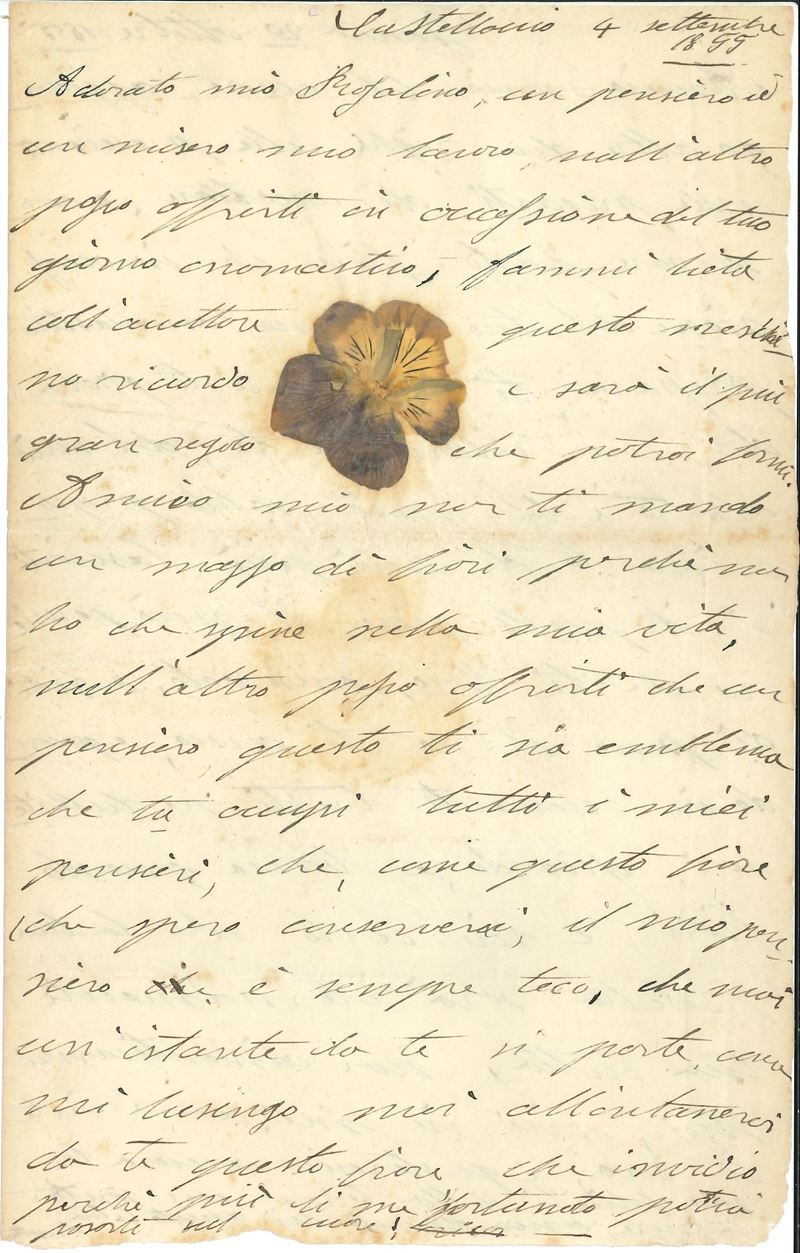 4 settembre
1899
Adorato mio Rosalino, un pensiero è
un misero mio lavoro, null'altro
posso offrirti in occassione del tuo
giorno onomastico, fammi lieta
coll'accettare questo meschi-
no ricordo e sarà il più
gran regalo che potrai farmi.
Amico mio non ti mando
un mazzo di fiori perchè non
ho che spine nella mia vita,
null'altro posso offrirti che un
pensiero, questo ti sia emblema
che tu occupi tutti i miei
pensieri, che, come questo fiore
(che spero conserverai, il mio pen-
siero è sempre teco, che mai
un'istante da te si parte, come
mi lusingo mai allontanerai
da te questo fiore che invidio
perchè più di me fortunato potrà
posarti sul cuore!